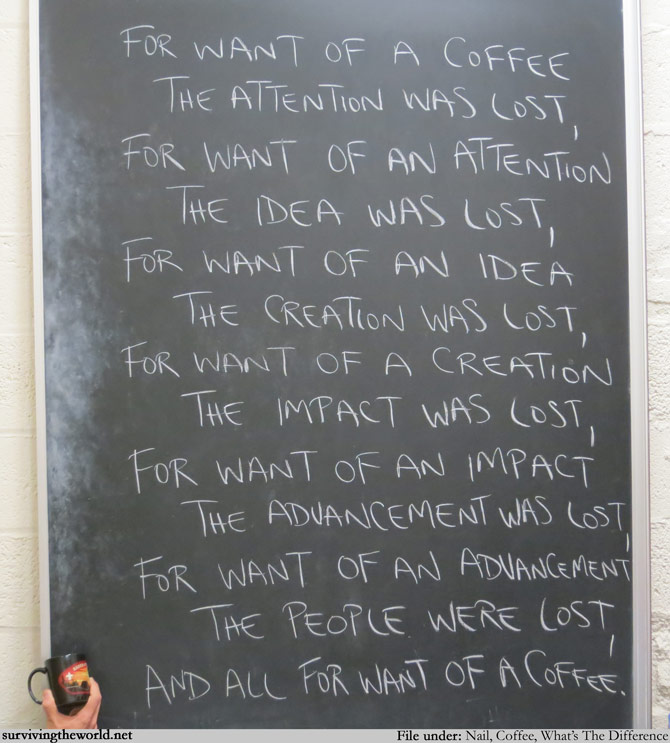 FOR WANT OF A COFFEE
THE ATTENTION WAS LOST,
FOR WANT OF AN ATTENTION
THE IDEA WAS LOST,
FOR WANT OF AN IDEA
THE CREATION WAS LOST,
FOR WANT OF A CREATION
THE IMPACT WAS LOST,
FOR WANT OF AN IMPACT
THE ADVANCEMENT WAS LOST,
FOR WANT OF AN ADVANCEMENT
THE PEOPLE WERE LOST,
AND ALL FOR WANT OF A COFFEE.
survivingtheworld.net
File under: Nail, Coffee, What's The Difference